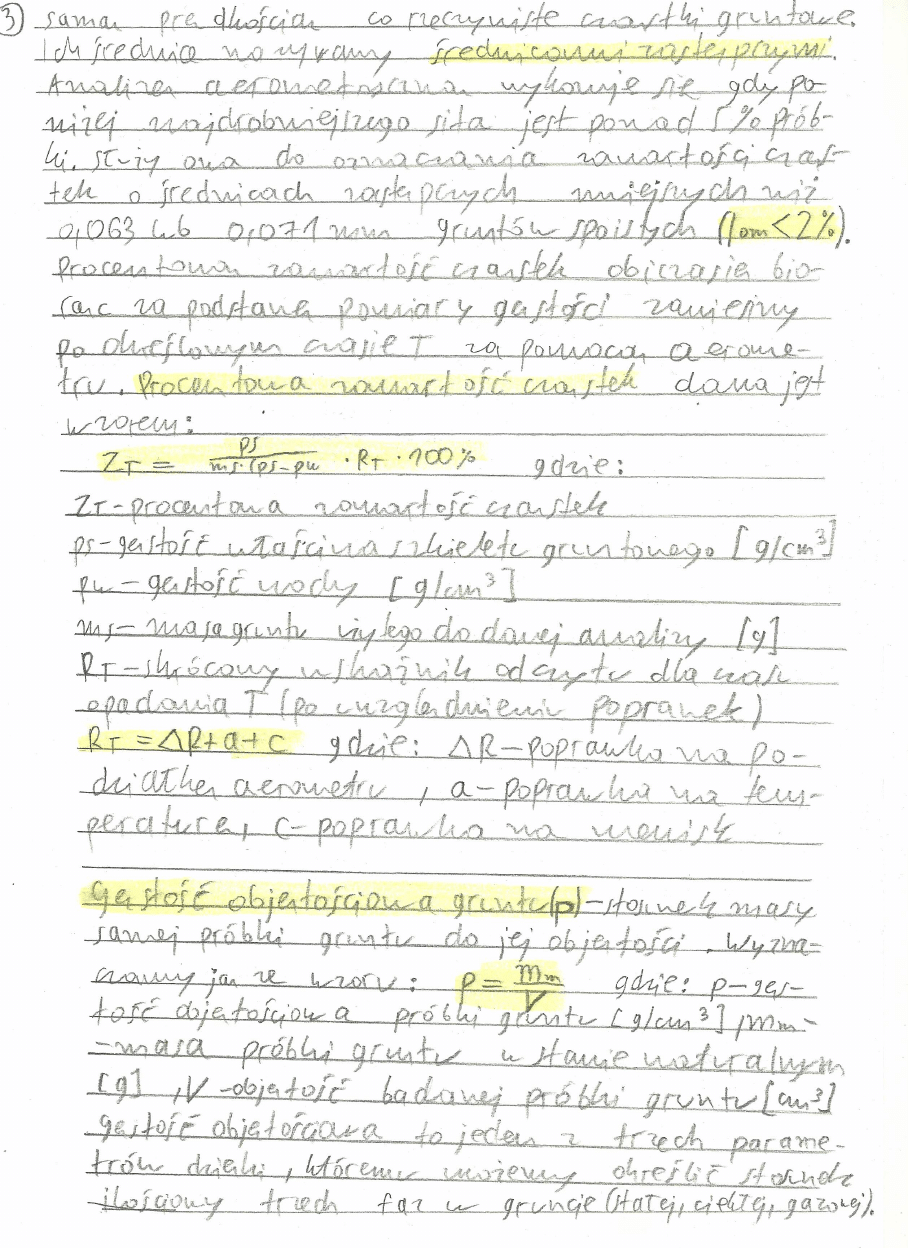 3) samą prędkością co rzeczywiste cząstki gruntowe.
Ich średnice nazywamy średnicami zastępczymi.
Analiza aerometryczna wykonuje się gdy po
niżej najdrobniejszego sita jest ponad 5% prób-
ki. Służy ona do oznaczania zawartości cząs-
tek o średnicach zastępczych mniejszych niż
0,063 lub 0,071 mm gruntów spoistych (Iom<2%).
Procentową zawartość cząstek oblicza się bio-
rąc za podstawę pomiary gęstości zawiesiny
po określonym czasie T za pomocą aerome-
tru. Procentowa zawartość cząstek dana jest
wzorem:
ZT = ps / ms·(ps-pw · RT · 100% gdzie:
ZT-procentowa zawartość cząstek
ps-gęstość właściwa szkieletu gruntowego [g/cm³]
pw-gęstość wody [g/cm³]
ms-masa gruntu użytego do danej analizy [g]
RT-skrócony wskaźnik odczytu dla czasu
opadania T (po uwzględnieniu poprawek)
RT = ΔR+a+c gdzie: ΔR-poprawka na po-
działkę aerometru, a-poprawka na tem-
peraturę, c-poprawka na menisk
Gęstość objętościowa gruntu(p)-stosunek masy
samej próbki gruntu do jej objętości. Wyzna-
czamy ją ze wzoru: p = mm / V gdzie: p-gęs-
tość objętościowa próbki gruntu [g/cm³], mm-
-masa próbki gruntu w stanie naturalnym
[g], V-objętość badanej próbki gruntu [cm³]
gęstość objętościowa to jeden z trzech parame-
trów dzięki, któremu możemy określić stosunek
ilościowy trzech faz w gruncie (stałej, ciekłej, gazowej).